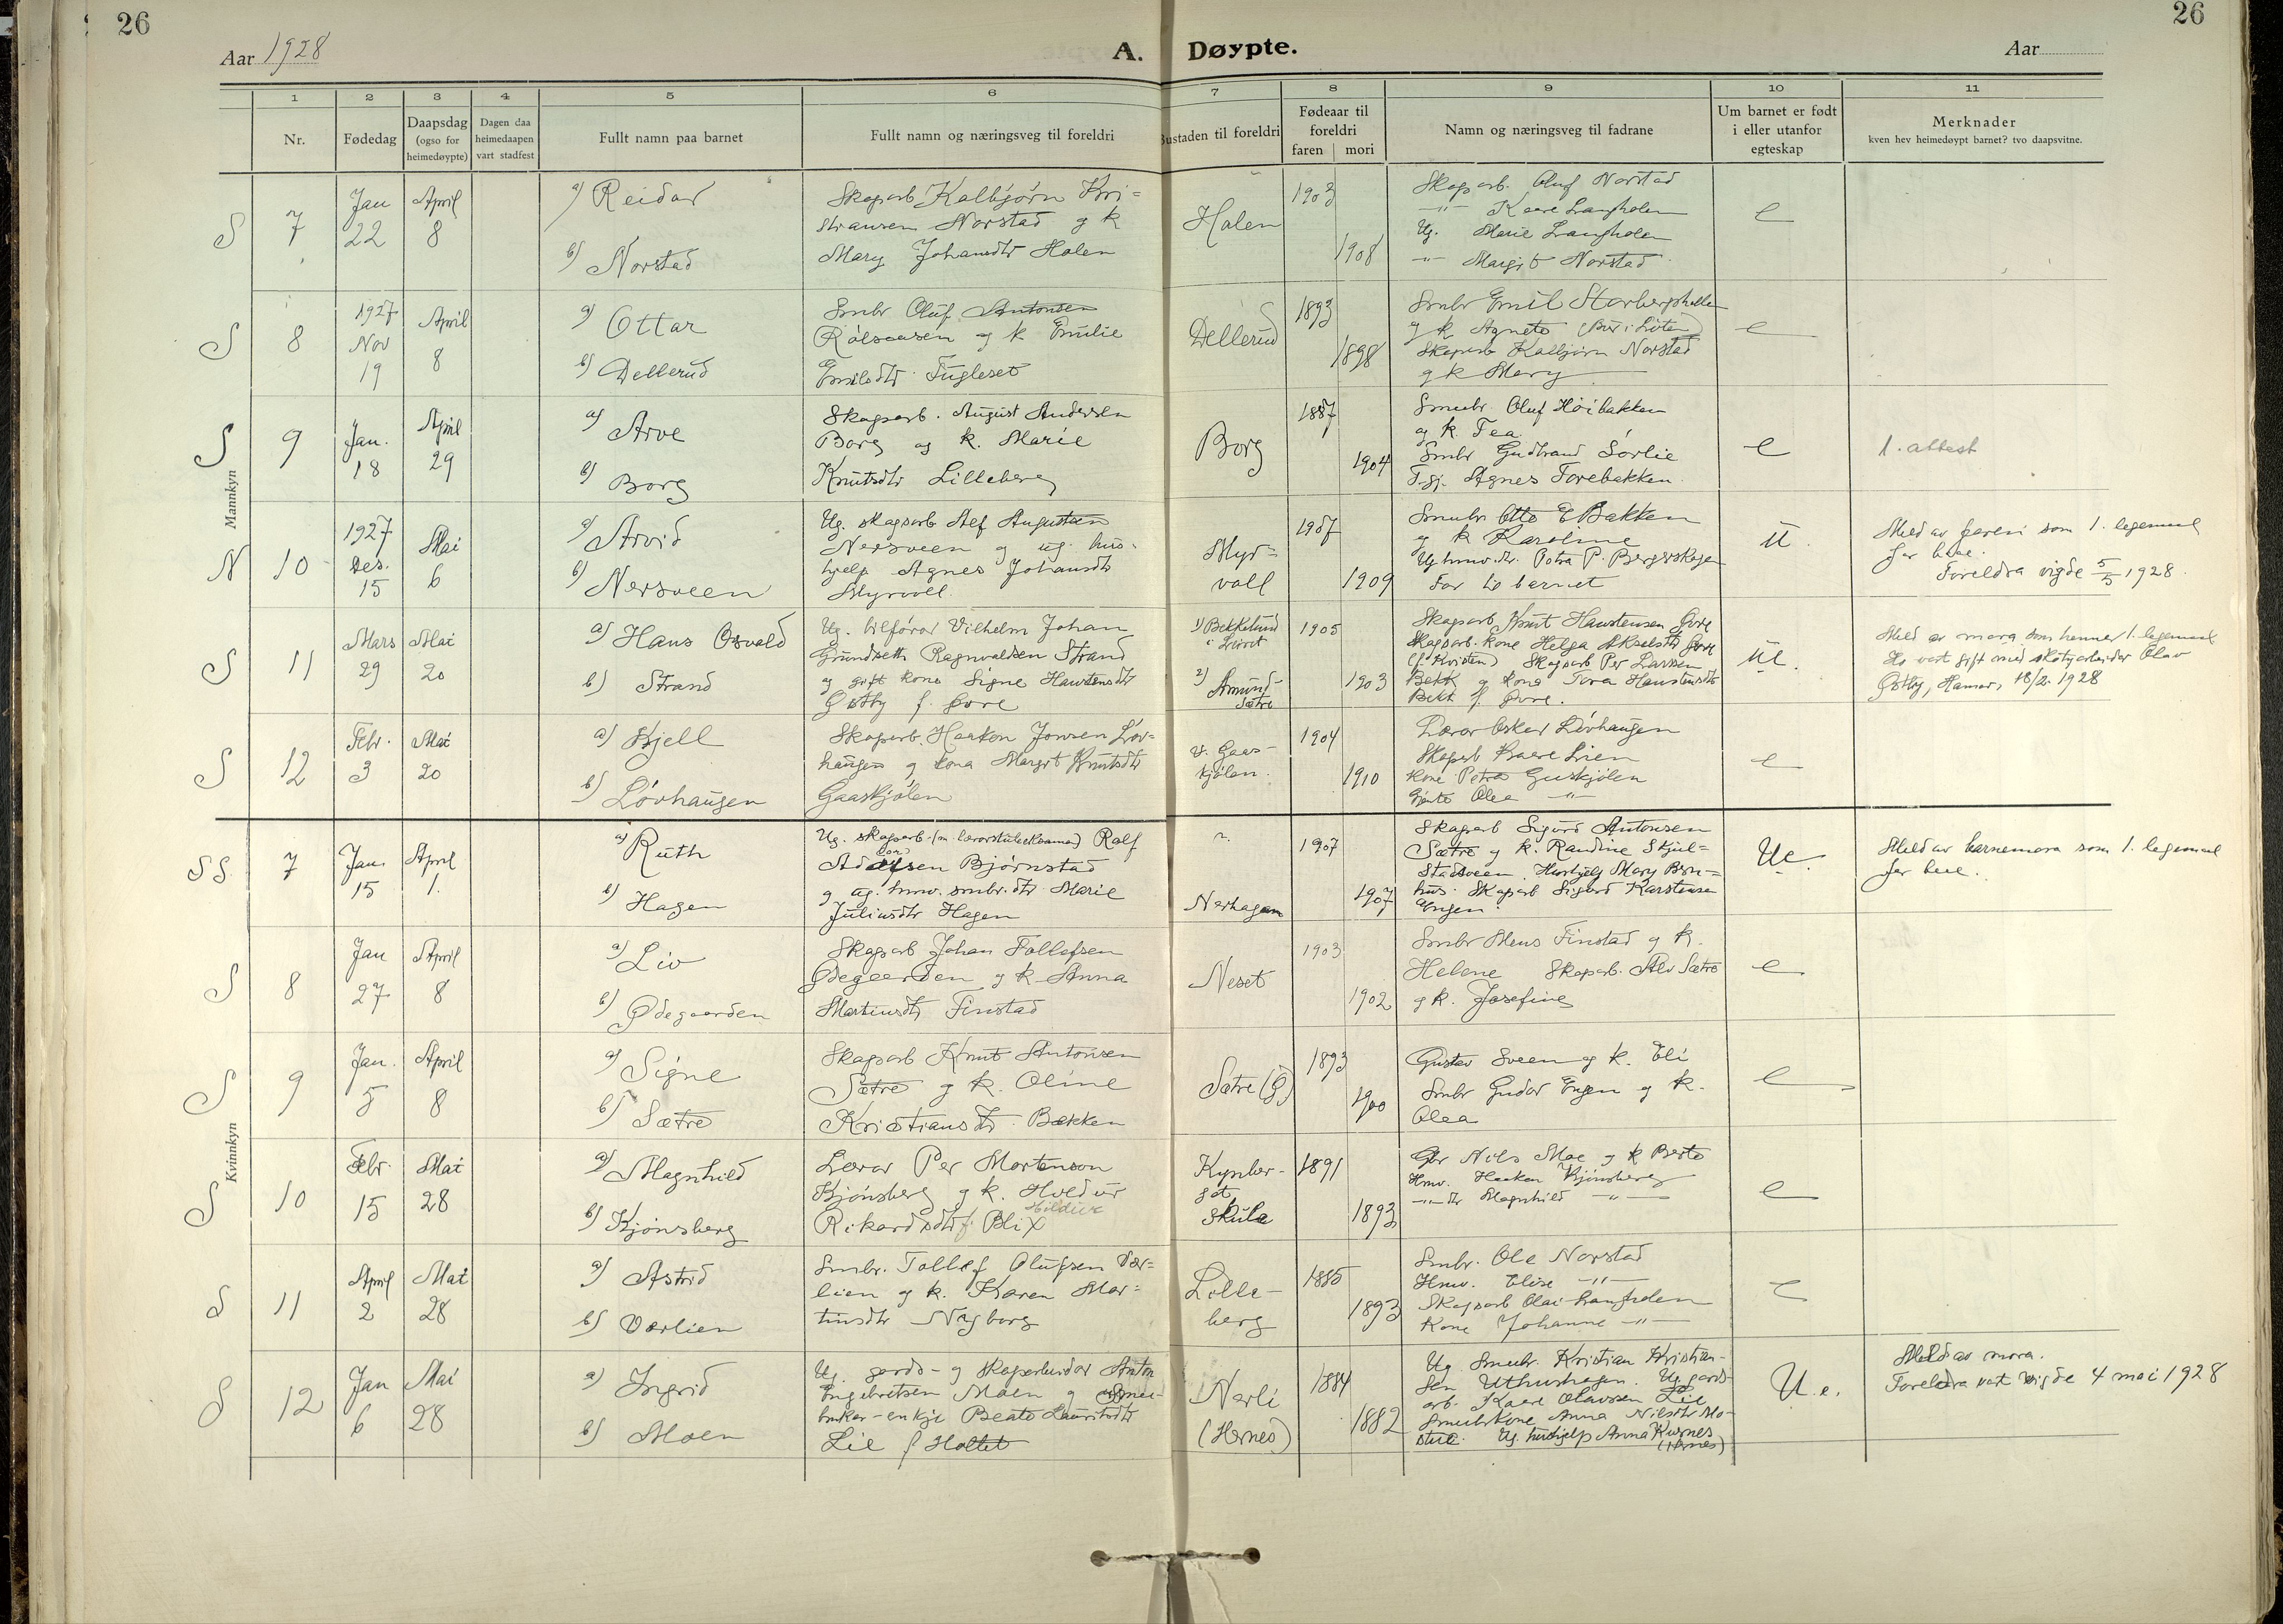 26
26
Aar 1928
A. Døypte.
Aar
1 2 3 4 5 6 7 8 9 10 11
Nr.
Fødedag
Daapsdag (ogso for heimedøypte)
Dagen daa heimedaapen vart stadfest
Fullt namn paa barnet
Fullt namn og næringsveg til foreldri
Bustaden til foreldri
Fødeaar til foreldri
faren mori
Namn og næringsveg til fadrane
Um barnet er født i eller utanfor egteskap
Merknader
kven hev heimedøypt barnet? tvo daapsvitne.
Mannkyn
S 7
Jan 22
April 8
a) Reidar
b) Norstad
Skogarb. Kolbjørn Kri=
stiansen Norstad og k
Mary Johansdtr Holen
Holen
1903
1908
Skogarb. Oluf Norstad
-"- Kaare Langholen
Ug. Marie Langholen
-"- Margit Norstad
e
S 8
1927 Nov 19
April 8
a) Ottar
b) Dellerud
Smbr Oluf Antonsen
Rølsaasen og k Emilie
Emilsdtr Fugleset
Dellerud
1893
1898
Smbr Emil Storbergshollen
og k Agnete (Bur i Løten)
Skogarb Kolbjørn Norstad
og k Mary
e
S 9
Jan. 18
April 29
a) Arve
b) Borg
Skogsarb. August Andersen
Borg og k. Marie
Knutsdtr Lilleberg
Borg
1887
1904
Smbr Oluf Høibakken
og k. Tea.
Smbr Gudbrand Sørlie
T.gj. Agnes Forebakken
e
1. attest
N 10
1927 Des. 15
Mai 6
a) Arvid
b) Nersveen
Ug. skogsarb Alf Augustsen
Nersveen og ug. hus-
hjelp Agnes Johansdtr
Myrvoll
Myr=
voll
1907
1909
Smubr Otto E Bakken
og k Karoline
Ug hmv.dtr. Petra P. Bergerskogen
Far to barnet
U.
Meld av faren som 1. legemaal
for baae.
Foreldra vigde 5/5 1928.
S 11
Mars 29
Mai 20
a) Hans Osvald
b) Strand
Ug. bilførar Vilhelm Johan
Grundseth Ragnvaldsen Strand
og gift kona Signe Haustensdtr
Østby f. Øvre
1) Bekkelund
i Leiret
2) Amund-
Sætre
1905
1903
Skogsarb Knut Haustensen Øvre
Skogsarb. kone Helga Akselsdtr Øvre
(f. Kvisten) Skogsarb Per Larssen
Bekk og kona Tora Haustensdtr
Bekk f. Øvre.
Ue.
Meld av mora som hennar 1. legemaal
Ho vart gift med skotyarbeidar Olav
Østby, Hamar, 18/2 1928
S 12
Febr. 3
Mai 20
a) Kjell
b) Løvhaugen
Skogarb. Haakon Jonsen Løv=
haugen og kona Margit Knutsdtr
Gaaskjølen
v. Gaas-
kjølen.
1904
1910
Lærar Oskar Løvhaugen
Skogarb Kaare Lien
Kone Petra Guskjølen
Gjente Olea -"-
e
Kvinnkyn
SS. 7
Jan. 15
April 1.
a) Ruth
b) Hagen
Ug. skogsarb. Ralf
Bjørnstad
og ug. hmv. smbr.dtr. Marie
Juliusdtr Hagen
?
Nerhagen
1907
1907
Skogarb Sigurd Antonsen
Sætre og k. Randine Skjul=
stadsveen. Hushjelp Mary Bru=
hus. Skogarb Sigurd Karstensen
Engen.
Ue
Meld av barnemora som 1. legemaal
for baae.
S 8
Jan 27
April 8
a) Liv
b) Ødegaarden
Skogarb Johan Tollefsen
Ødegaarden og k Anna
Martinsdtr Finstad
Neset
1903
1902
Smbr Mons Finstad og k.
Helene Skogarb. Alv Sætre
og k. Josefine
e
S 9
Jan. 5
April 8
a) Signe
b) Sætre
Skogarb Knut Antonsen
Sætre og k. Oline
Kristiansdtr. Bakken
Sætre (Ø)
1893
1900
Gustav Sveen og k. Eli
Smbr Gudar Engen og k.
Olea
e
S 10
Febr. 15
Mai 28
a) Magnhild
b) Kjønsberg
Lærar Per Mortenson
Kjønsberg og k. Hvedur
Hildur
Rikardsdtr f. Blix
Kynber-
get
skule
1891
1893
Gbr Nils Moe og k Berte
Hmv. Haakon Kjønsberg
-"- dtr Magnhild -"-
e
S 11
April 2
Mai 28
a) Astrid
b) Værlien
Smbr. Tollef Olufsen Vær=
lien og k. Karen Mar=
tinsdtr Nyborg
Lille-
berg
1885
1893
Smbr. Ole Norstad
Hmv. Elise -"-
Skogsarb Olai Langholen
Kone Johanne -"-
e
S 12
Jan 6
Mai 28
a) Ingrid
b) Moen
Ug. gards- og skogarbeidar Anton
Engebretsen Moen og Smaa-
brukar-enkje Beate Lauritsdtr
Lie f Holtet
Nerli
(Hernes)
1884
1882
Ug Smubr. Kristian Kristian-
sen Uthushagen. Ug gards-
arb. Kaare Olavssen Lie
Smubrkone Anna Nilsdtr Mo-
stue. Ug. hushjelp Anna Kurnes
(Hernes)
U.e.
Meld av mora.
Foreldra vart vigde 4 mai 1928